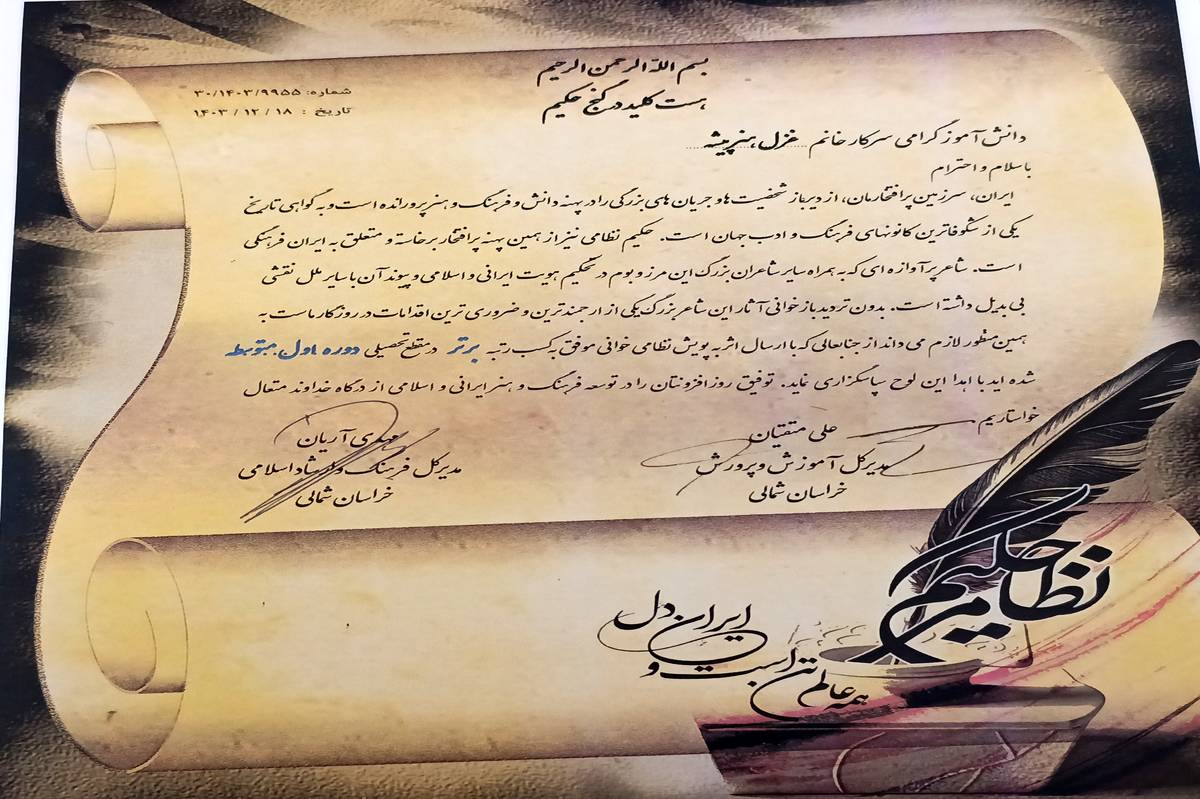 بسم الله الرحمن الرحیم
هست کلید در گنج حکیم
شماره: ۳۰/۱۴۰۳/۹۹۵۵
تاریخ : ۱۴۰۳/۱۲/۱۸
دانش آموز گرامی سرکار خانم غزل هنرپیشه
با سلام و احترام
ایران، سرزمین پرافتخارمان، از دیرباز شخصیت ها و جریان های بزرگی را در پهنه دانش و فرهنگ و هنر پرورانده است و به گواهی تاریخ
یکی از شکوفاترین کانونهای فرهنگ و ادب جهان است. حکیم نظامی نیز از همین پهنه پرافتخار برخاسته و متعلق به ایران فرهنگی
است. شاعر پرآوازه ای که به همراه سایر شاعران بزرگ این مرز و بوم در تحکیم هویت ایرانی و اسلامی و پیوند آن با سایر ملل نقشی
بی بدیل داشته است. بدون تردید بازخوانی آثار این شاعر بزرگ یکی از ارجمندترین و ضروری ترین اقدامات در روزگار ماست به
همین منظور لازم می داند از جنابعالی که با ارسال اثر به پویش نظامی خوانی موفق به کسب رتبه برتر در مقطع تحصیلی دوره اول متوسطه
شده اید با اهدا این لوح سپاسگزاری نماید. توفیق روز افزونتان را در توسعه فرهنگ و هنر ایرانی و اسلامی از درگاه خداوند متعال
خواستاریم
علی متقیان
مدیرکل آموزش و پرورش
خراسان شمالی
مهدی آریان
مدیرکل فرهنگ و ارشاد اسلامی
خراسان شمالی
حکیم نظامی
همه عالم تن است و
ایران دل